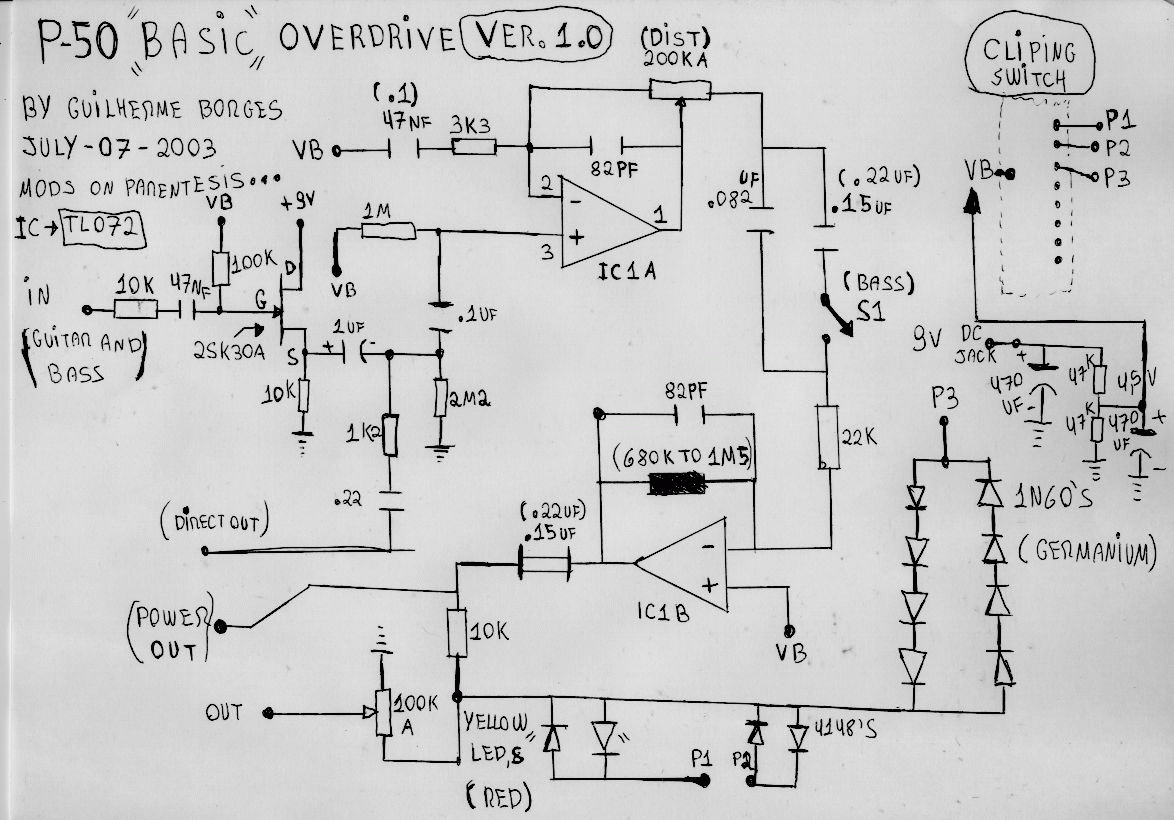 P-50 "BASIC" OVERDRIVE VER. 1.0
BY GUILHERME BORGES
JULY-07-2003
MODS ON PARENTESIS...
IC→ TL072
(DIST)
200KA
CLIPING
SWITCH
P1
P2
P3
VB
(.1)
47NF
3K3
VB
82PF
2
-
1
+
3
IC1A
UF
.082
(.22UF)
.15UF
(BASS)
S1
VB
+9V
100K
D
G
S
IN
10K
47NF
(GUITAR AND
BASS)
2SK30A
1M
VB
.1UF
+ 1UF -
10K
2M2
1K2
.22
(DIRECT OUT)
9V DC
JACK
+
470
UF -
47K
47K
4,5V
470
UF
+
-
82PF
(680K TO 1M5)
22K
P3
1N60'S
(GERMANIUM)
(.22UF)
.15UF
-
+
IC1B
VB
(POWER
OUT)
10K
OUT
100K
A
YELLOW
LED,S
(RED)
" "
P1
P2
4148'S